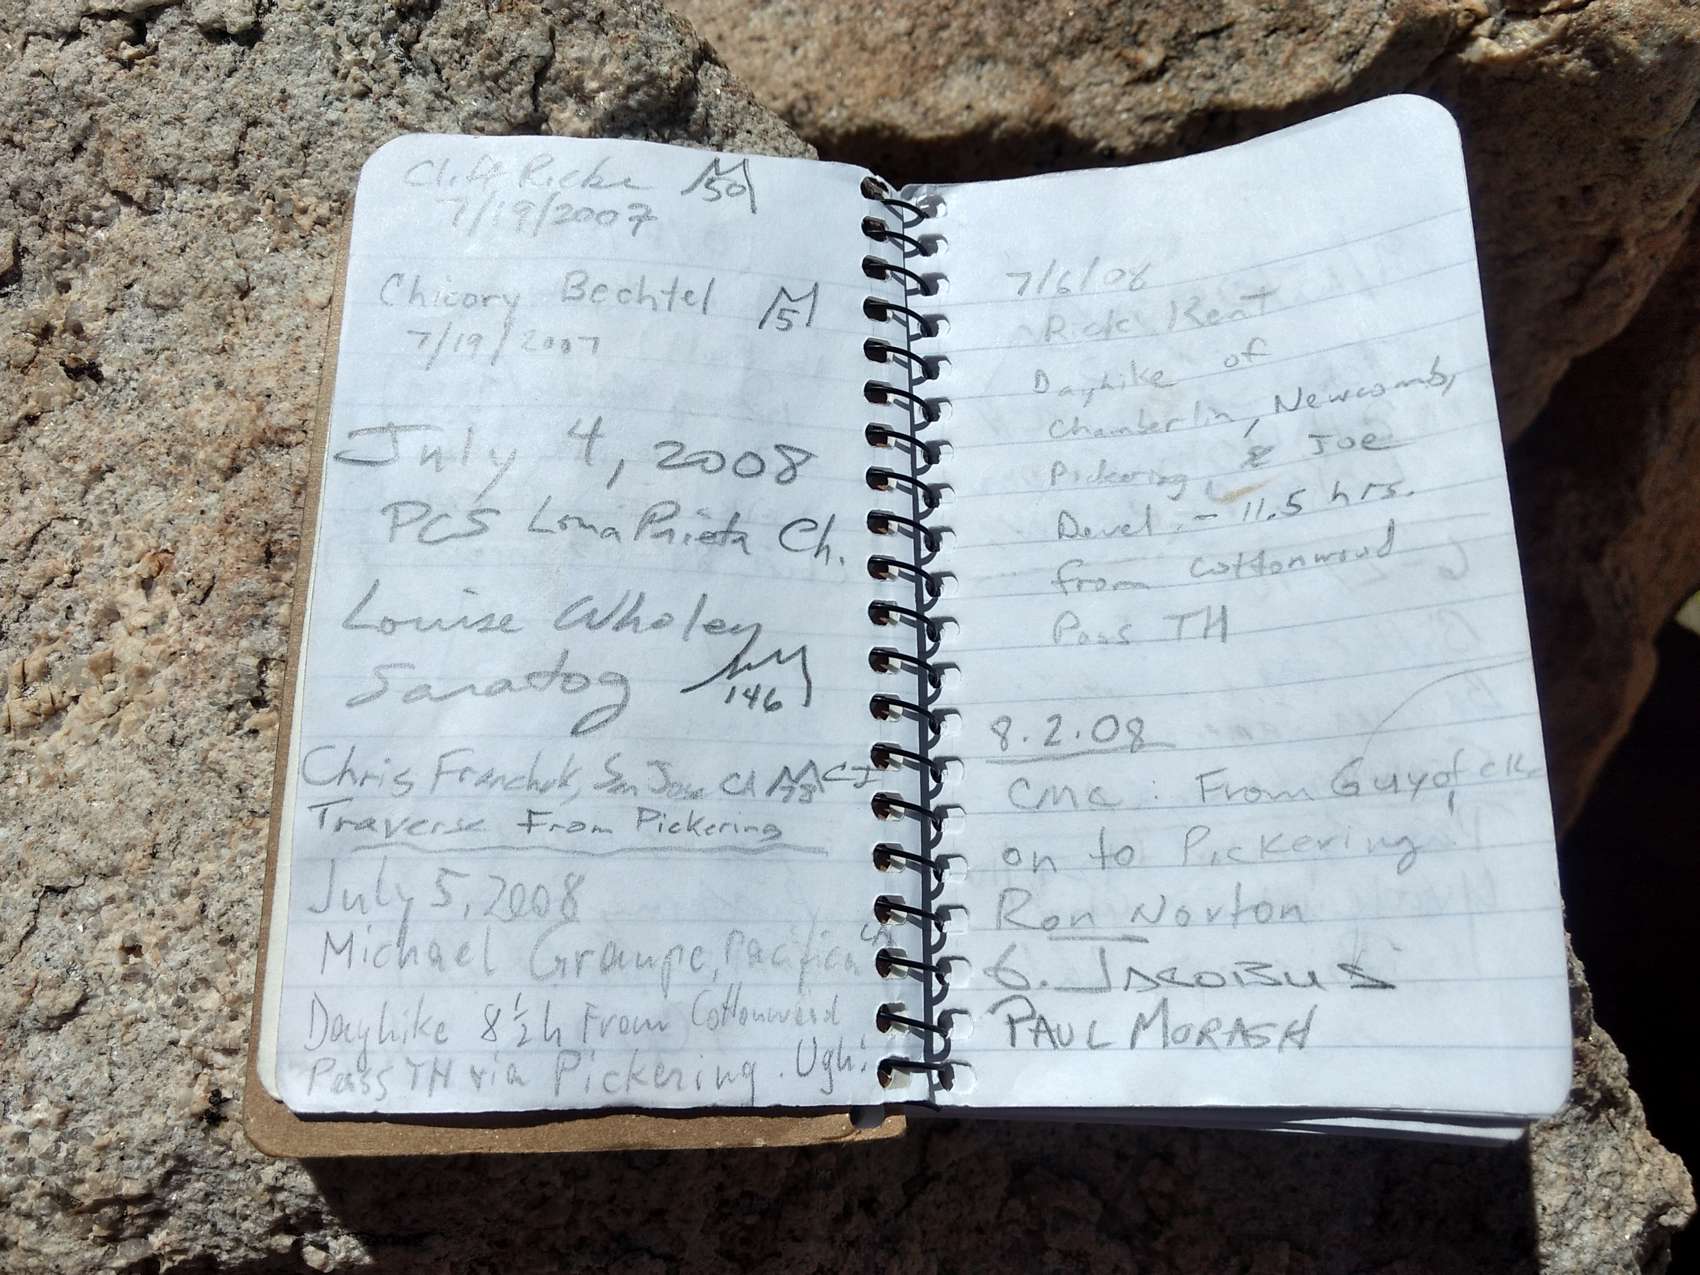 Cliff Ricke 50
7/19/2007
Chicory Bechtel 5
7/19/2007
July 4, 2008
PCS Loma Prieta Ch.
Louise Wholey
Saratog 146
Chris Franchuk, San Jose CA
Traverse From Pickering
July 5, 2008
Michael Graupe, Pacifica CA
Dayhike 8 1/2 h From Cottonwood
Pass TH via Pickering. Ugh!
7/6/08
Rick Kent
Dayhike of
Chamberlin, Newcomb,
Pickering, & Joe
Devel. - 11.5 hrs.
from Cottonwood
Pass TH
8.2.08
CMC: From Guyot
on to Pickering!
Ron Norton
G. JACOBUS
PAUL MORASH